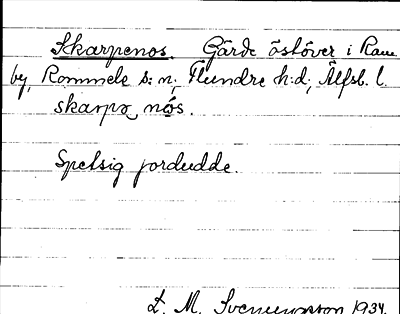 Skarpenos. Gärde östöver i Rane
by, Rommele s:n, Flundre h:d, Älfsb. l.
skarpə nös.
Spetsig jordudde.
L. M. Svenungsson 1934.